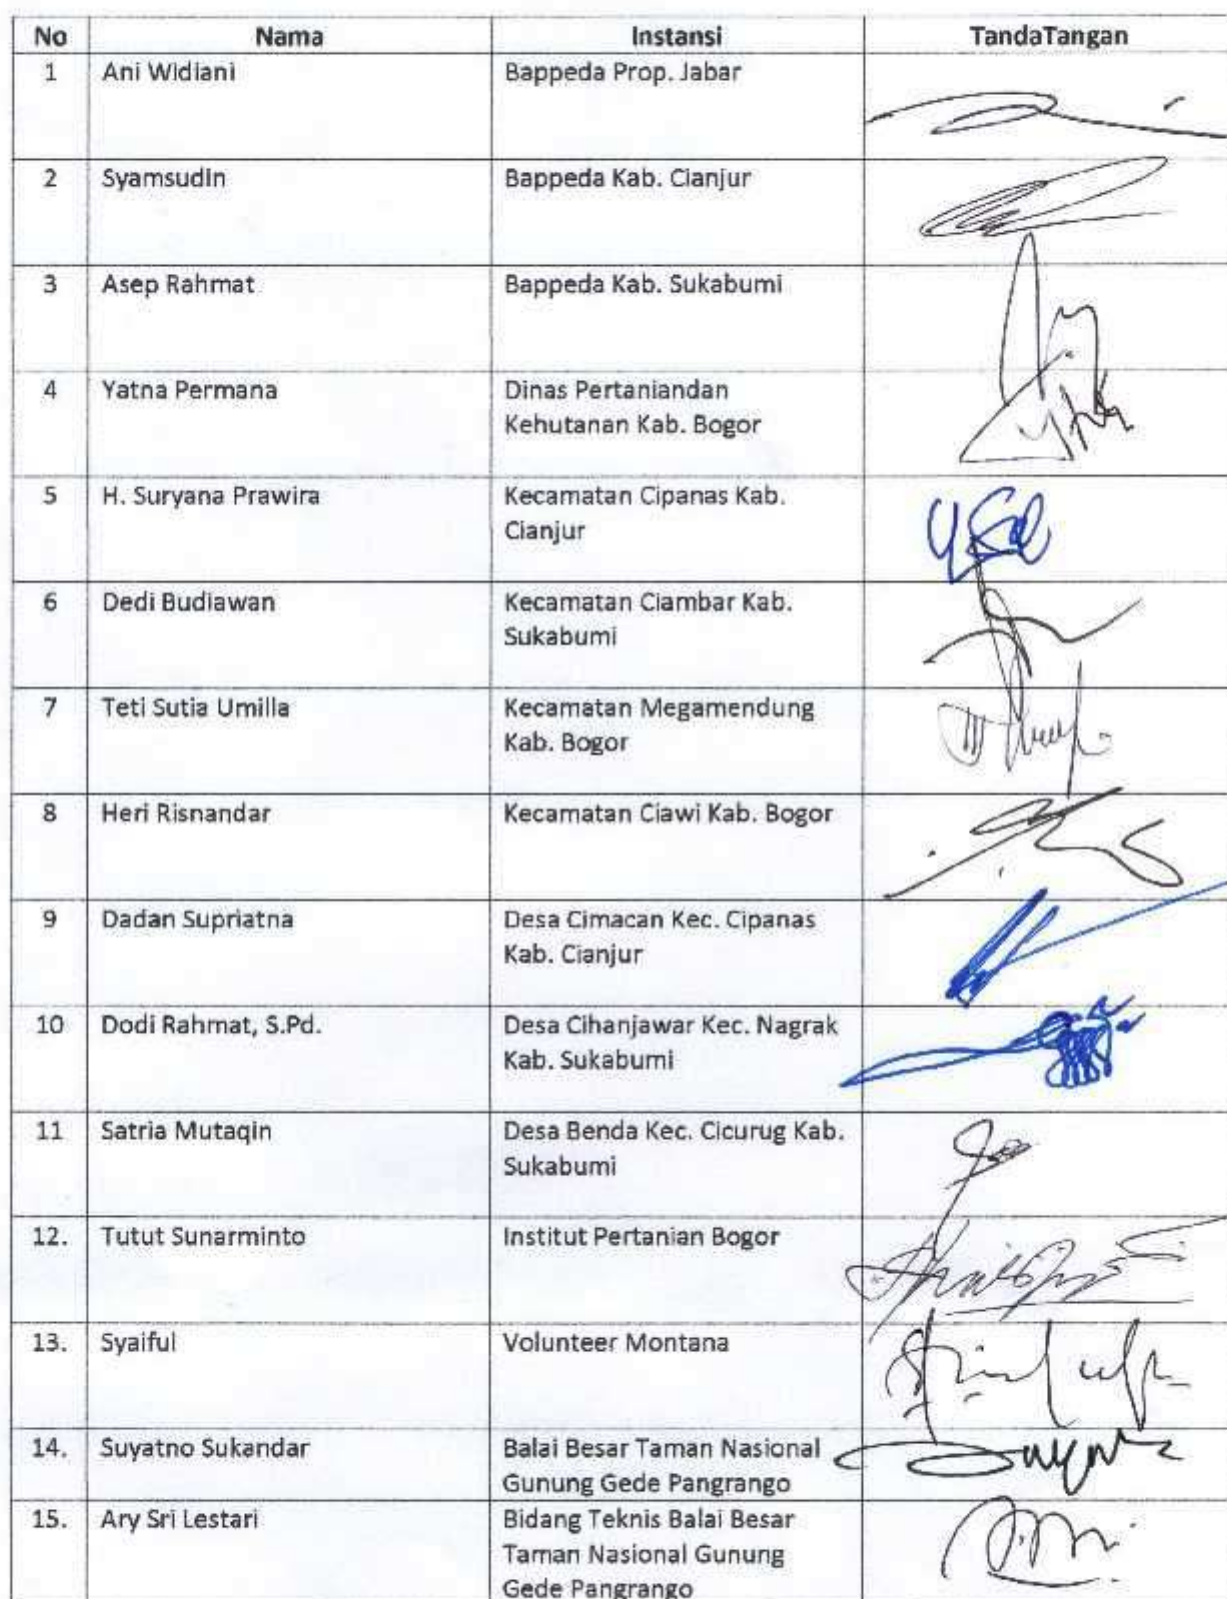 No Nama Instansi TandaTangan
1 Ani Widiani Bappeda Prop. Jabar
2 Syamsudin Bappeda Kab. Cianjur
3 Asep Rahmat Bappeda Kab. Sukabumi
4 Yatna Permana Dinas Pertaniandan
Kehutanan Kab. Bogor
5 H. Suryana Prawira Kecamatan Cipanas Kab.
Cianjur
6 Dedi Budiawan Kecamatan Ciambar Kab.
Sukabumi
7 Teti Sutia Umilla Kecamatan Megamendung
Kab. Bogor
8 Heri Risnandar Kecamatan Ciawi Kab. Bogor
9 Dadan Supriatna Desa Cimacan Kec. Cipanas
Kab. Cianjur
10 Dodi Rahmat, S.Pd. Desa Cihanjawar Kec. Nagrak
Kab. Sukabumi
11 Satria Mutaqin Desa Benda Kec. Cicurug Kab.
Sukabumi
12. Tutut Sunarminto Institut Pertanian Bogor
13. Syaiful Volunteer Montana
14. Suyatno Sukandar Balai Besar Taman Nasional
Gunung Gede Pangrango
15. Ary Sri Lestari Bidang Teknis Balai Besar
Taman Nasional Gunung
Gede Pangrango